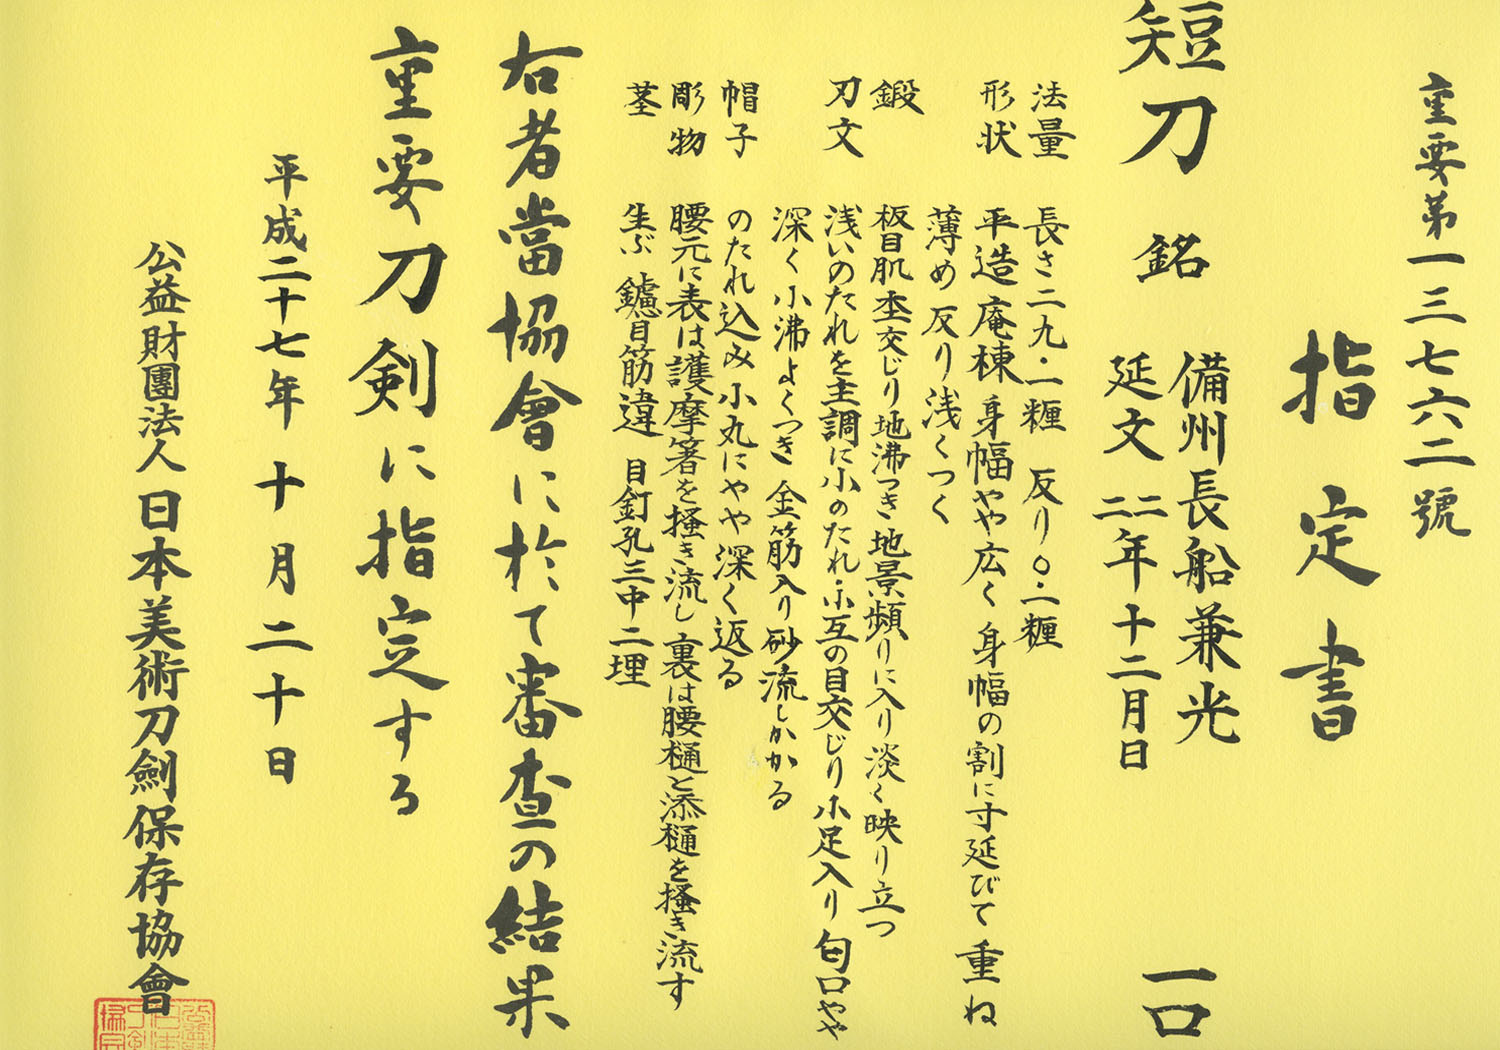 重要第一三七六二號
指定書
短刀 銘 備州長船兼光 一口
延文二二年十二月日
法量 長さ二九・一糎 反り〇・二糎
形状 平造庵棟 身幅やや広く 身幅の割に寸延びて 重ね
薄め 反り浅くつく
鍛 板目肌杢交じり 地沸つき 地景頻りに入り 淡く映り立つ
刃文 浅いのたれを主調に小のたれ・小互の目交じり 小足入り 匂口やや
深く 小沸よくつき 金筋入り 砂流しかかる
帽子 のたれ込み 小丸にやや深く返る
彫物 腰元に表は護摩箸を掻き流し 裏は腰樋と添樋を掻き流す
茎 生ぶ 鑢目筋違 目釘孔三中二埋
右者當協會に於て審査の結果
重要刀剣に指定する
平成二十七年 十月二十日
公益財團法人日本美術刀劍保存協會